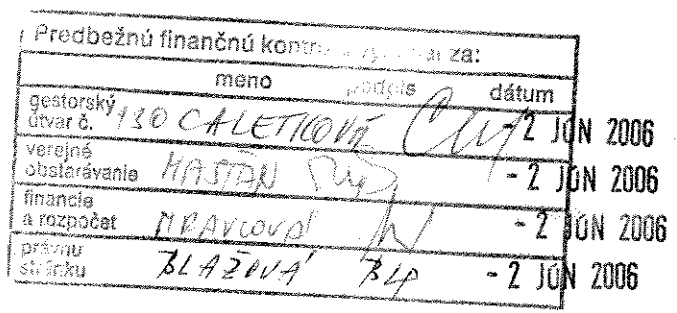 Predbežnú finančnú kontrolu vykonal za:
meno podpis dátum
gestorský útvar č. 130 CALETKOVÁ - 2 JÚN 2006
verejné obstarávanie MASŤAN - 2 JÚN 2006
financie a rozpočet MRAVCOVÁ - 2 JÚN 2006
právnu stránku BLAŽOVÁ - 2 JÚN 2006